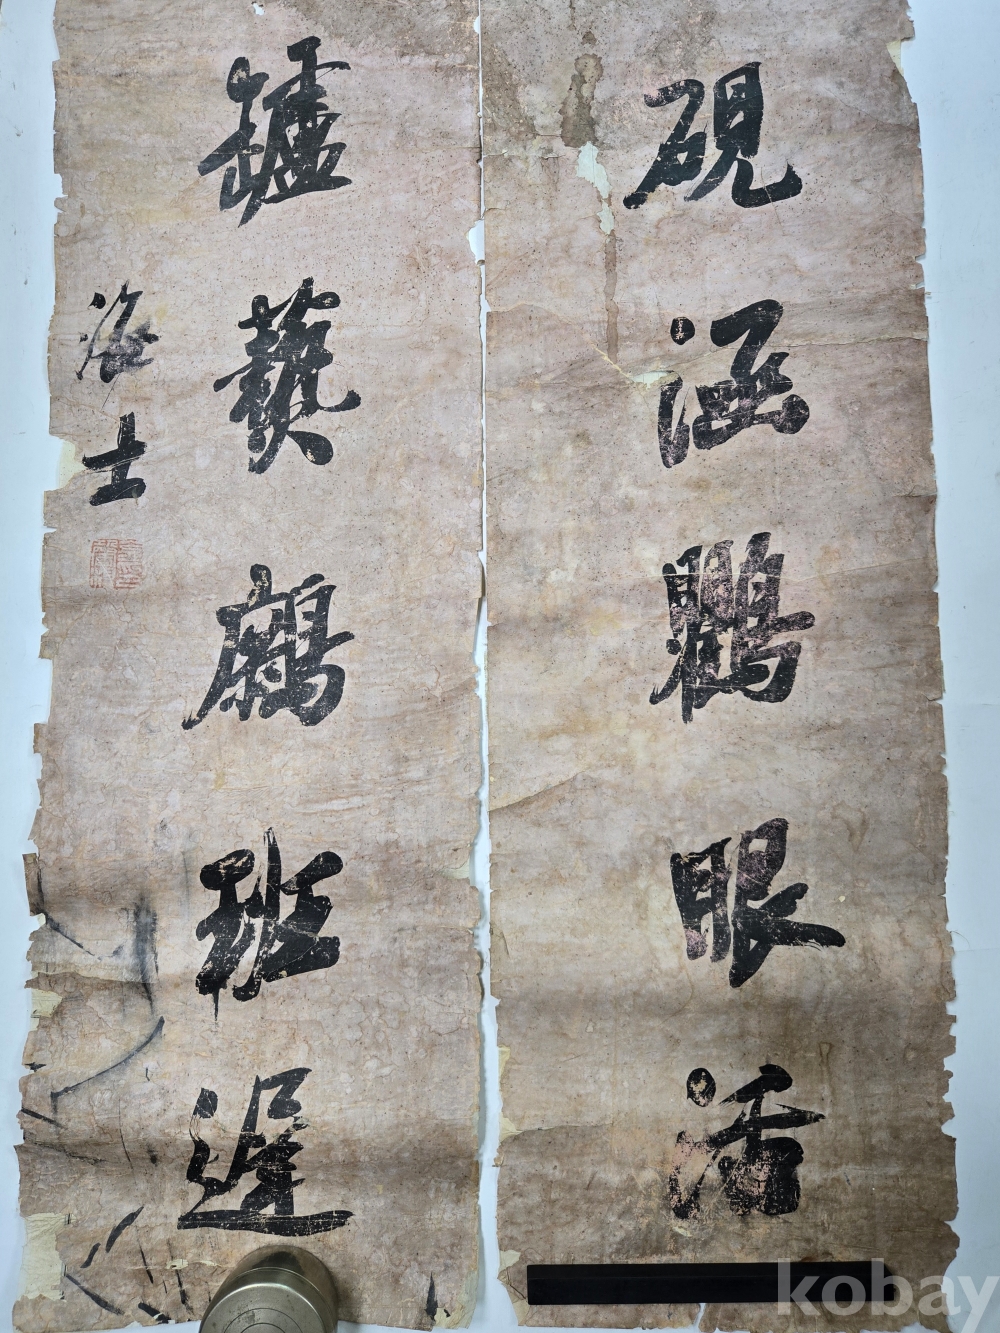 硯涵鸜眼活
罏爇鷓班遲
海士
kobay